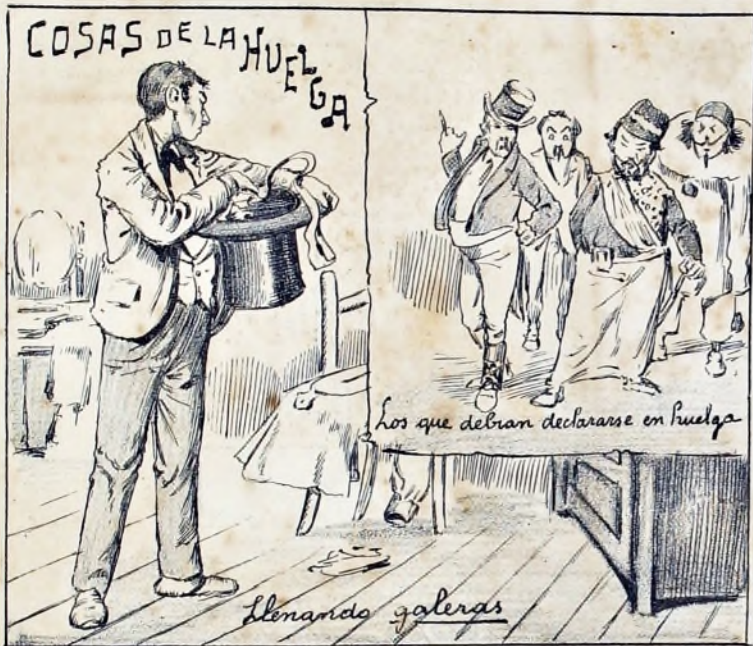 COSAS DE LA HUELGA
Los que debian declararse en huelga
Llenando galeras